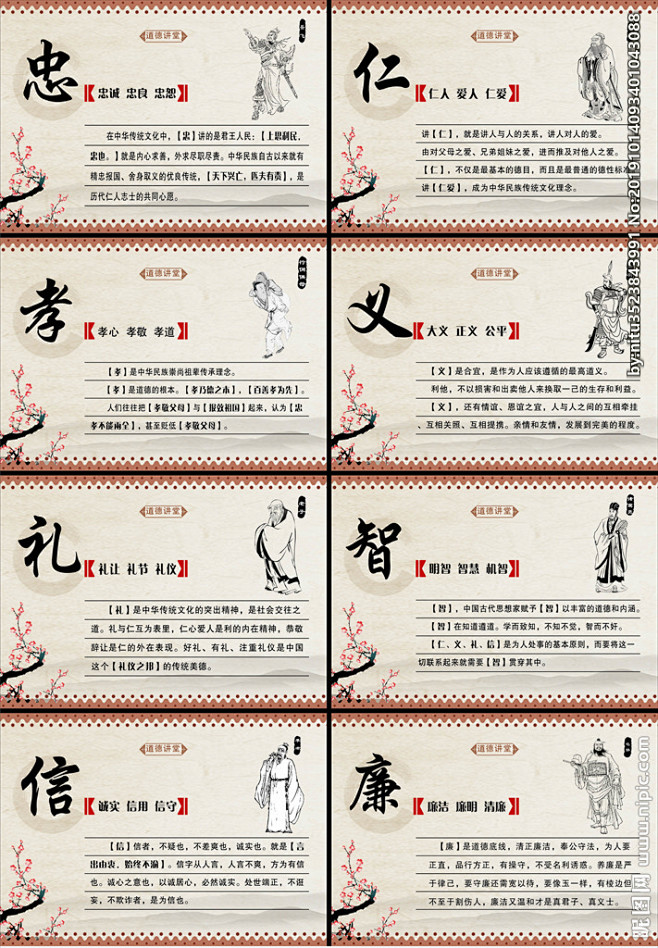 道德讲堂
岳飞
忠
忠诚 忠良 忠恕
在中华传统文化中，【忠】讲的是君王人民：【上思利民，
忠也。】就是内心求善，外求尽职尽责。中华民族自古以来就有
精忠报国、舍身取义的优良传统，【天下兴亡，匹夫有责】，是
历代仁人志士的共同心愿。
道德讲堂
仁
仁人 爱人 仁爱
讲【仁】，就是讲人与人的关系，讲人对人的爱。
由对父母之爱、兄弟姐妹之爱，进而推及对他人之爱。
【仁】，不仅是最基本的德目，而且是最普通的德性标准
讲【仁爱】，成为中华民族传统文化理念。
道德讲堂
孝
孝心 孝敬 孝道
【孝】是中华民族崇尚祖辈传承理念。
【孝】是道德的根本。【孝乃德之本】，【百善孝为先】。
人们往往把【孝敬父母】与【报效祖国】起来，认为【忠
孝不能两全】，甚至贬低【孝敬父母】。
道德讲堂
义
大义 正义 公平
【义】是合宜，是作为人应该遵循的最高道义。
利他，不以损害和出卖他人来换取一己的生存和利益。
【义】，还有情谊、恩谊之宜，人与人之间的互相牵挂
、互相关照、互相提携。亲情和友情，发展到完美的程度。
道德讲堂
老子
礼
礼让 礼节 礼仪
【礼】是中华传统文化的突出精神，是社会交往之
道。礼与仁互为表里，仁心爱人是利的内在精神，恭敬
辞让是仁的外在表现。好礼、有礼、注重礼仪是中国
这个【礼仪之邦】的传统美德。
道德讲堂
智
明智 智慧 机智
【智】，中国古代思想家赋予【智】以丰富的道德和内涵。
【智】在知道遵道。学而致知，不知不觉，智而不好。
【仁、义、礼、信】是为人处事的基本原则，而要将这一
切联系起来就需要【智】贯穿其中。
道德讲堂
信
诚实 信用 信守
【信】信者，不疑也，不差爽也，诚实也。就是【言
出由衷、始终不渝】。信字从人言，人言不爽，方为有信
也。诚心之意也，以诚居心，必然诚实。处世端正，不诳
妄，不欺诈者，是为信也。
道德讲堂
廉
廉洁 廉明 清廉
【廉】是道德底线，清正廉洁，奉公守法，为人要
正直，品行方正，有操守，不受名利诱惑。养廉是严
于律己，要守廉还需宽以待，要像玉一样，有棱边但
不至于割伤人，廉洁又温和才是真君子、真义士。
by:nitu3523843991 No:20191014093401043088
昵图网 www.nipic.com